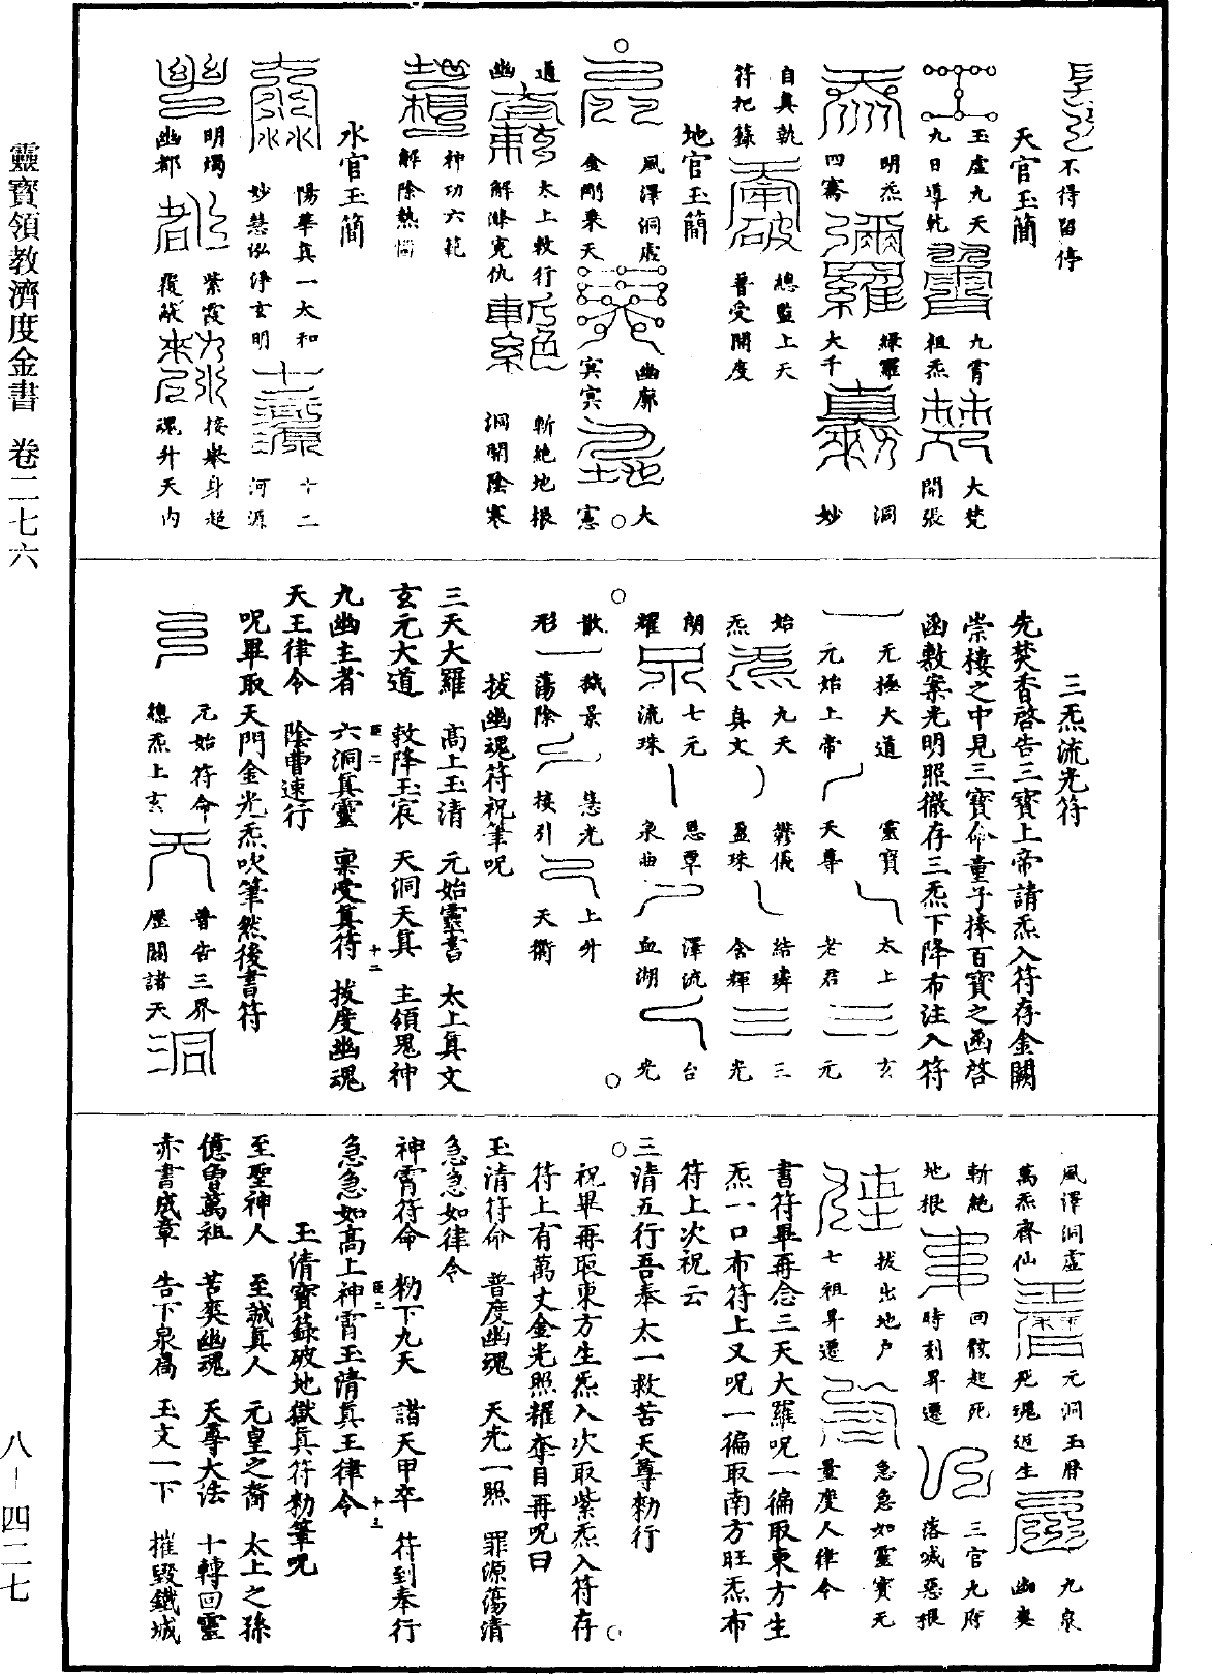 不得留停
天官玉簡
玉虛九天 九霄 大梵
九日導乾 祖炁 開張
明炁 綠羅 洞
四騫 大千 妙
自真執 總監上天
符把籙 普受開度
地官玉簡
風澤洞虛 幽廓 大
金剛乘天 冥冥 憲
道 太上敕行 斬絕地根
幽 解滌冤仇 洞開陰寒
神功六範
解除熱惱
水官玉簡
陽華真一太和 十二
妙慧泓淨玄明 河源
明燭 紫霞 接舉身超
幽都 魂升天內
三炁流光符
先焚香啓告三寶上帝請炁入符存金闕
崇樓之中見三寶命童子捧百寶之函啓
函敷案光明照徹存三炁下降布注入符
元極大道 靈寶 太上 玄
元始上帝 天尊 老君 元
始 九天 鬱儀 結璘 三
炁 真文 盈珠 含輝 光
朗 七元 恩覃 澤流 台
耀 流珠 泉曲 血湖 光
散 穢景 慧光 上升
形 蕩除 接引 天衢
拔幽魂符祝筆呪
三天大羅 高上玉清 元始靈書 太上真文
玄元大道 敕降玉宸 天洞天真 主領鬼神
九幽主者 六洞真靈 稟受真符 拔度幽魂
天王律令 陰曹速行
呪畢取天門金光炁吹筆然後書符
元始符命 普告三界
總炁上玄 歷關諸天
風澤洞虛 元洞玉曆 九泉
萬炁齊仙 死魂返生 幽爽
斬絕 回骸起死 三官九府
地根 時刻昇遷 落滅惡根
拔出地户 急急如靈寶元
七祖昇遷 量度人律令
書符畢再念三天大羅呪一徧取東方生
炁一口布符上又呪一徧取南方旺炁布
符上次祝云
三清五行吾奉太一救苦天尊勑行
祝畢再取東方生炁入次取紫炁入符存
符上有萬丈金光照耀奪目再呪曰
玉清符命 普度幽魂 天光一照 罪源蕩清
急急如律令
神霄符命 勑下九天 諸天甲卒 符到奉行
急急如高上神霄玉清真王律令
玉清寶籙破地獄真符勑筆呪
至聖神人 至誠真人 元皇之裔 太上之孫
億曾萬祖 苦爽幽魂 天尊大法 十轉回靈
赤書成章 告下泉扃 玉文一下 摧毀鐵城
靈寶領教濟度金書 卷二七六
八－四二七